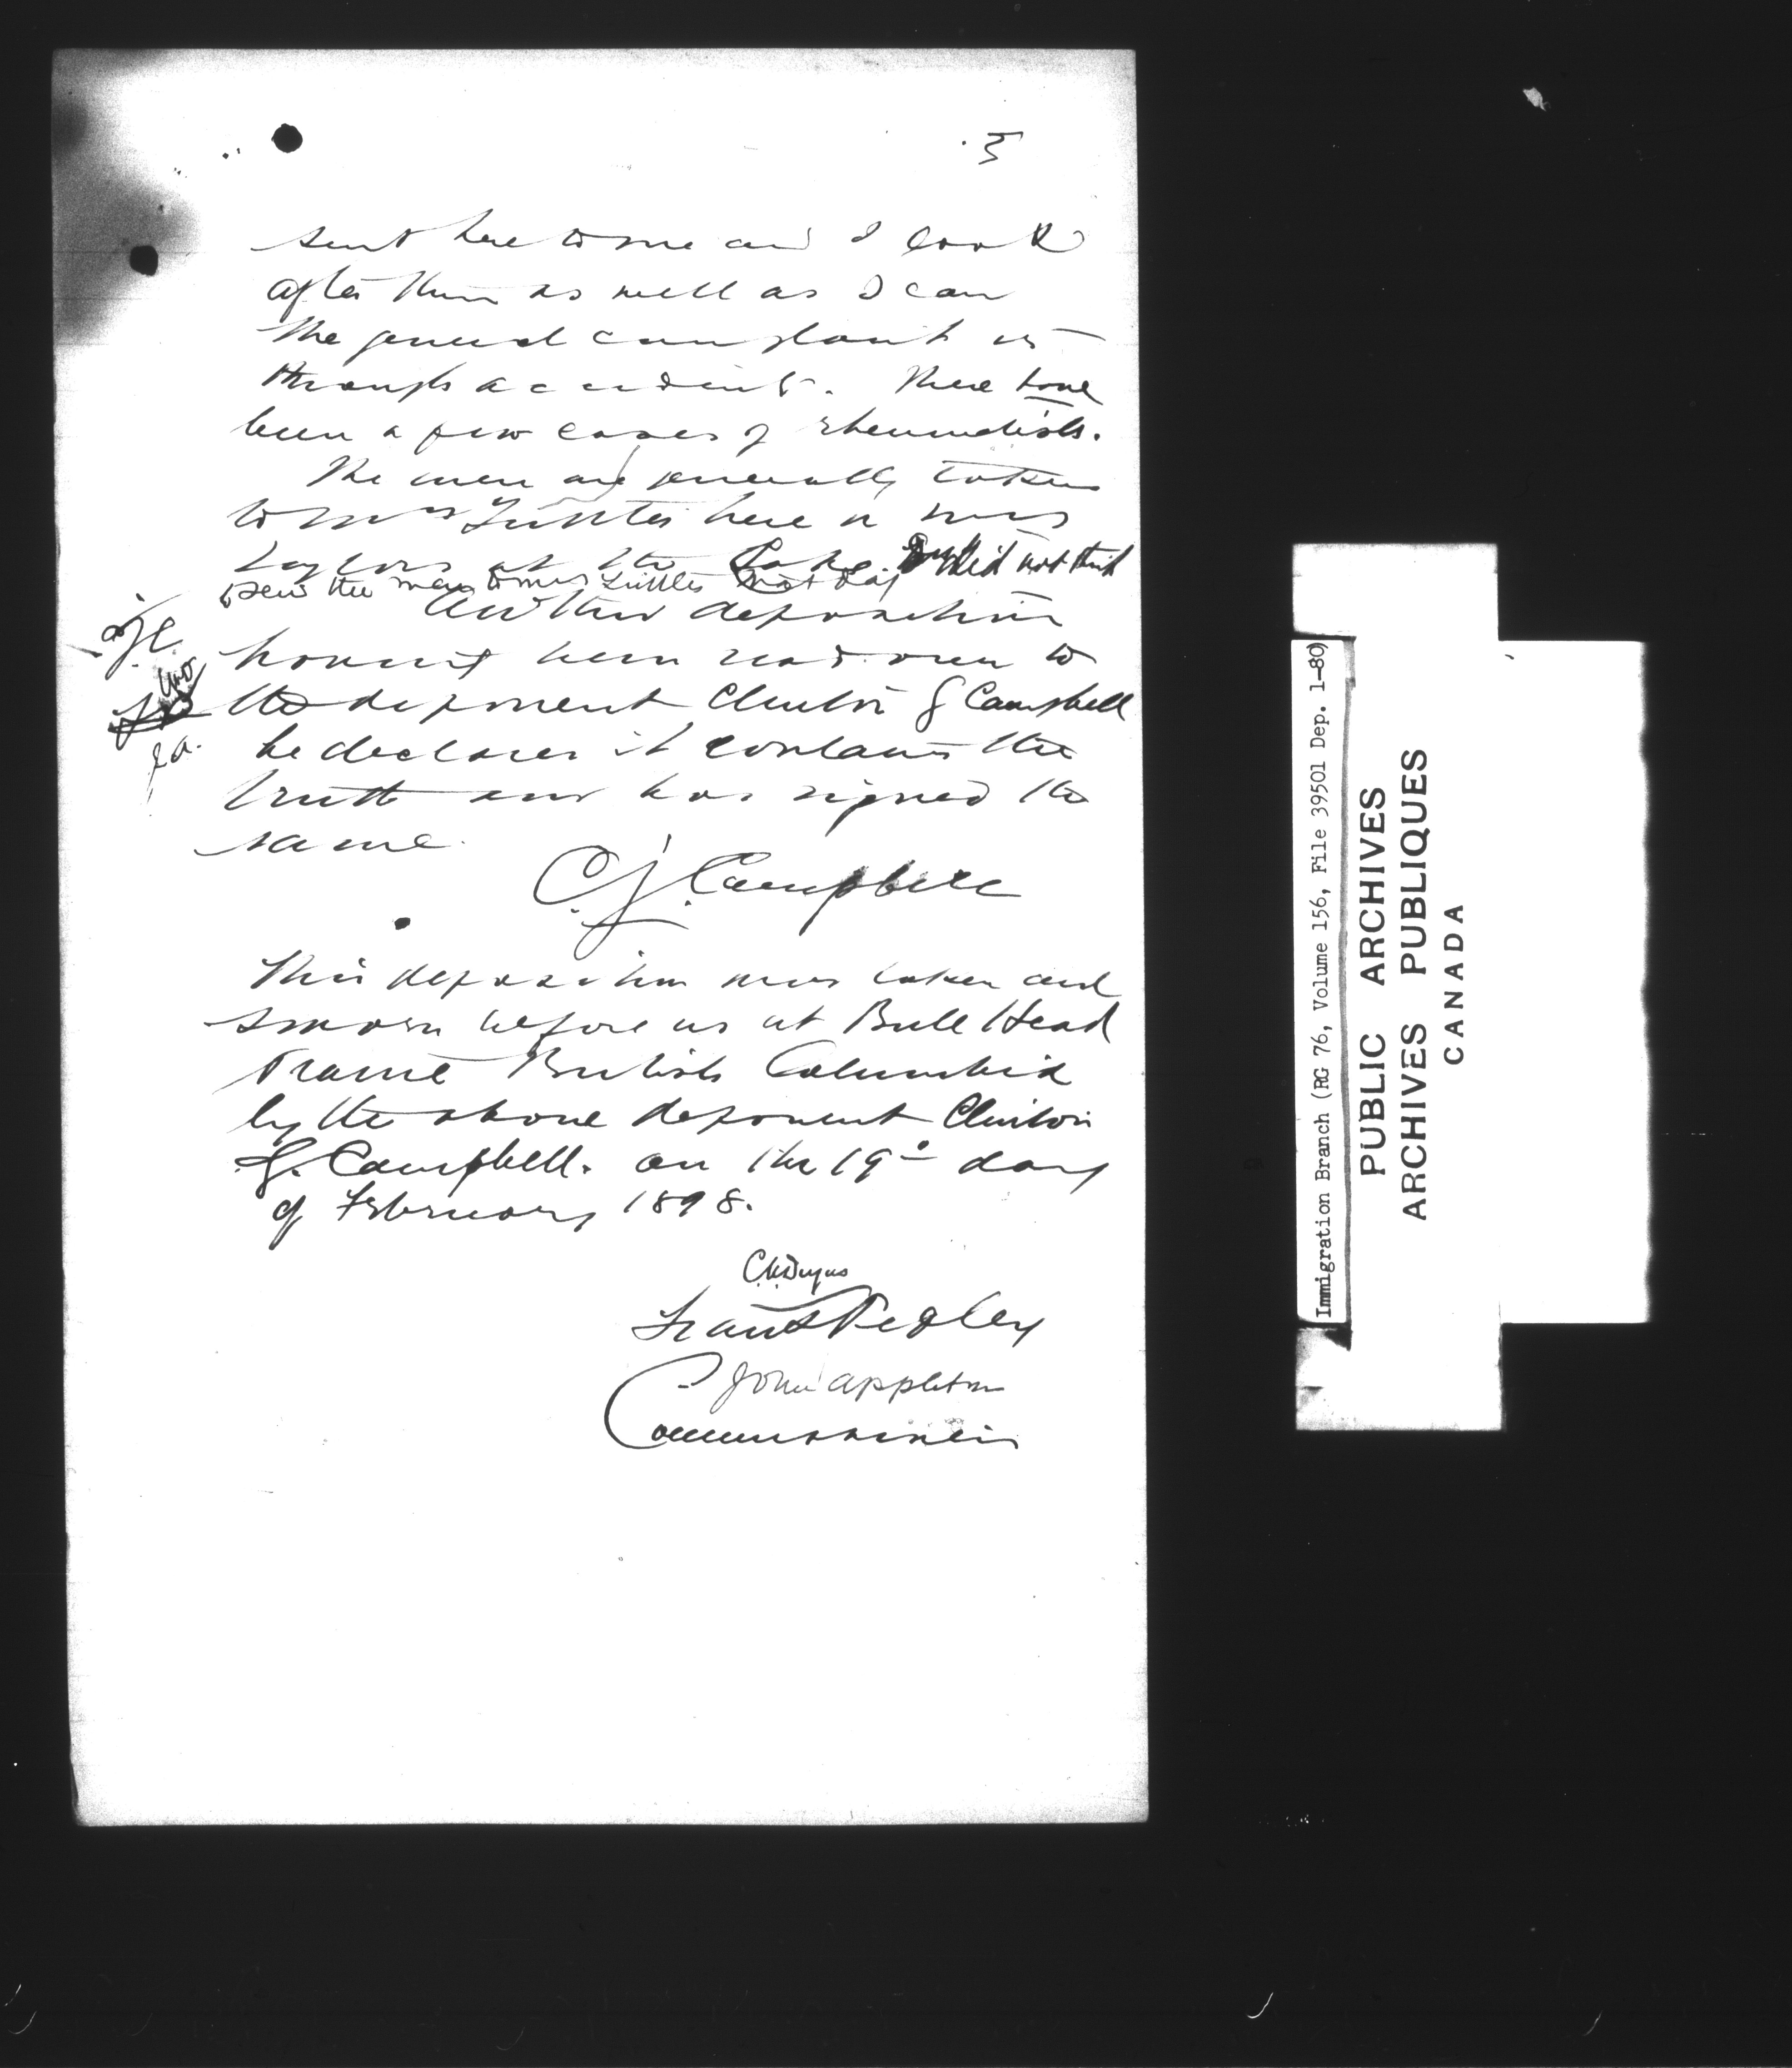 3
sent here to me and I look
after them as well as I can
The general complaint is
through accidents. There have
been a few cases of rheumatists.
The men are generally taken
to Mrs Tuttles here or Mrs
Taylors at the Lake. did not think
to send the man to Mrs Tuttles that day
And this deposition
having been read over to
the deponent Clinton J Campbell
he declares it contains the
truth and has signed the
same.
C. J. Campbell
This deposition was taken and
sworn before us at Bull Head
Prairie British Columbia
by the above deponent Clinton
J. Campbell. on the 19th day
of February 1898.
C.A. Dugas
Frank Pedley
John Appleton
Commissioners
Immigration Branch (RG 76, Volume 156, File 39501 Dep. 1-80)
PUBLIC ARCHIVES
ARCHIVES PUBLIQUES
CANADA